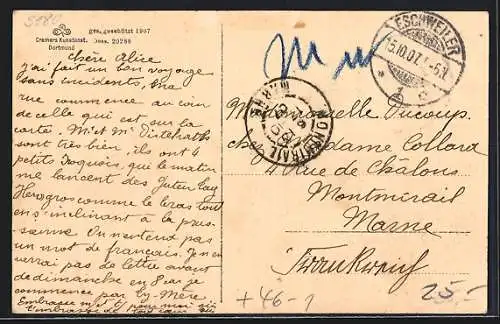 5884
ges. geschützt 1907
Cramers Kunstanst. Dess. 20288
Dortmund
Chère Alice
j'ai fait un bon voyage
sans incidents, ma
rue commence au coin
de celle qui est sur la
carte. Mr et Me
sont très bien, ils ont 4
petits qui le matin
me lancent des Guten Tag
gros comme le bras tout
en s'inclinant à la prus-
sienne. On n'entend pas
un mot de français. Je n'en
verrai pas de lettre avant
de dimanche en 8 car je
commence par
Embrasse pour moi
t'embrasse de tout
ESCHWEILER
15.10.07
MONTMIRAIL
MARNE
Mademoiselle Ducoup
chez Madame Collard
4 Rue de Châlons
Montmirail
Marne
Frankreich
+46-1
25.-